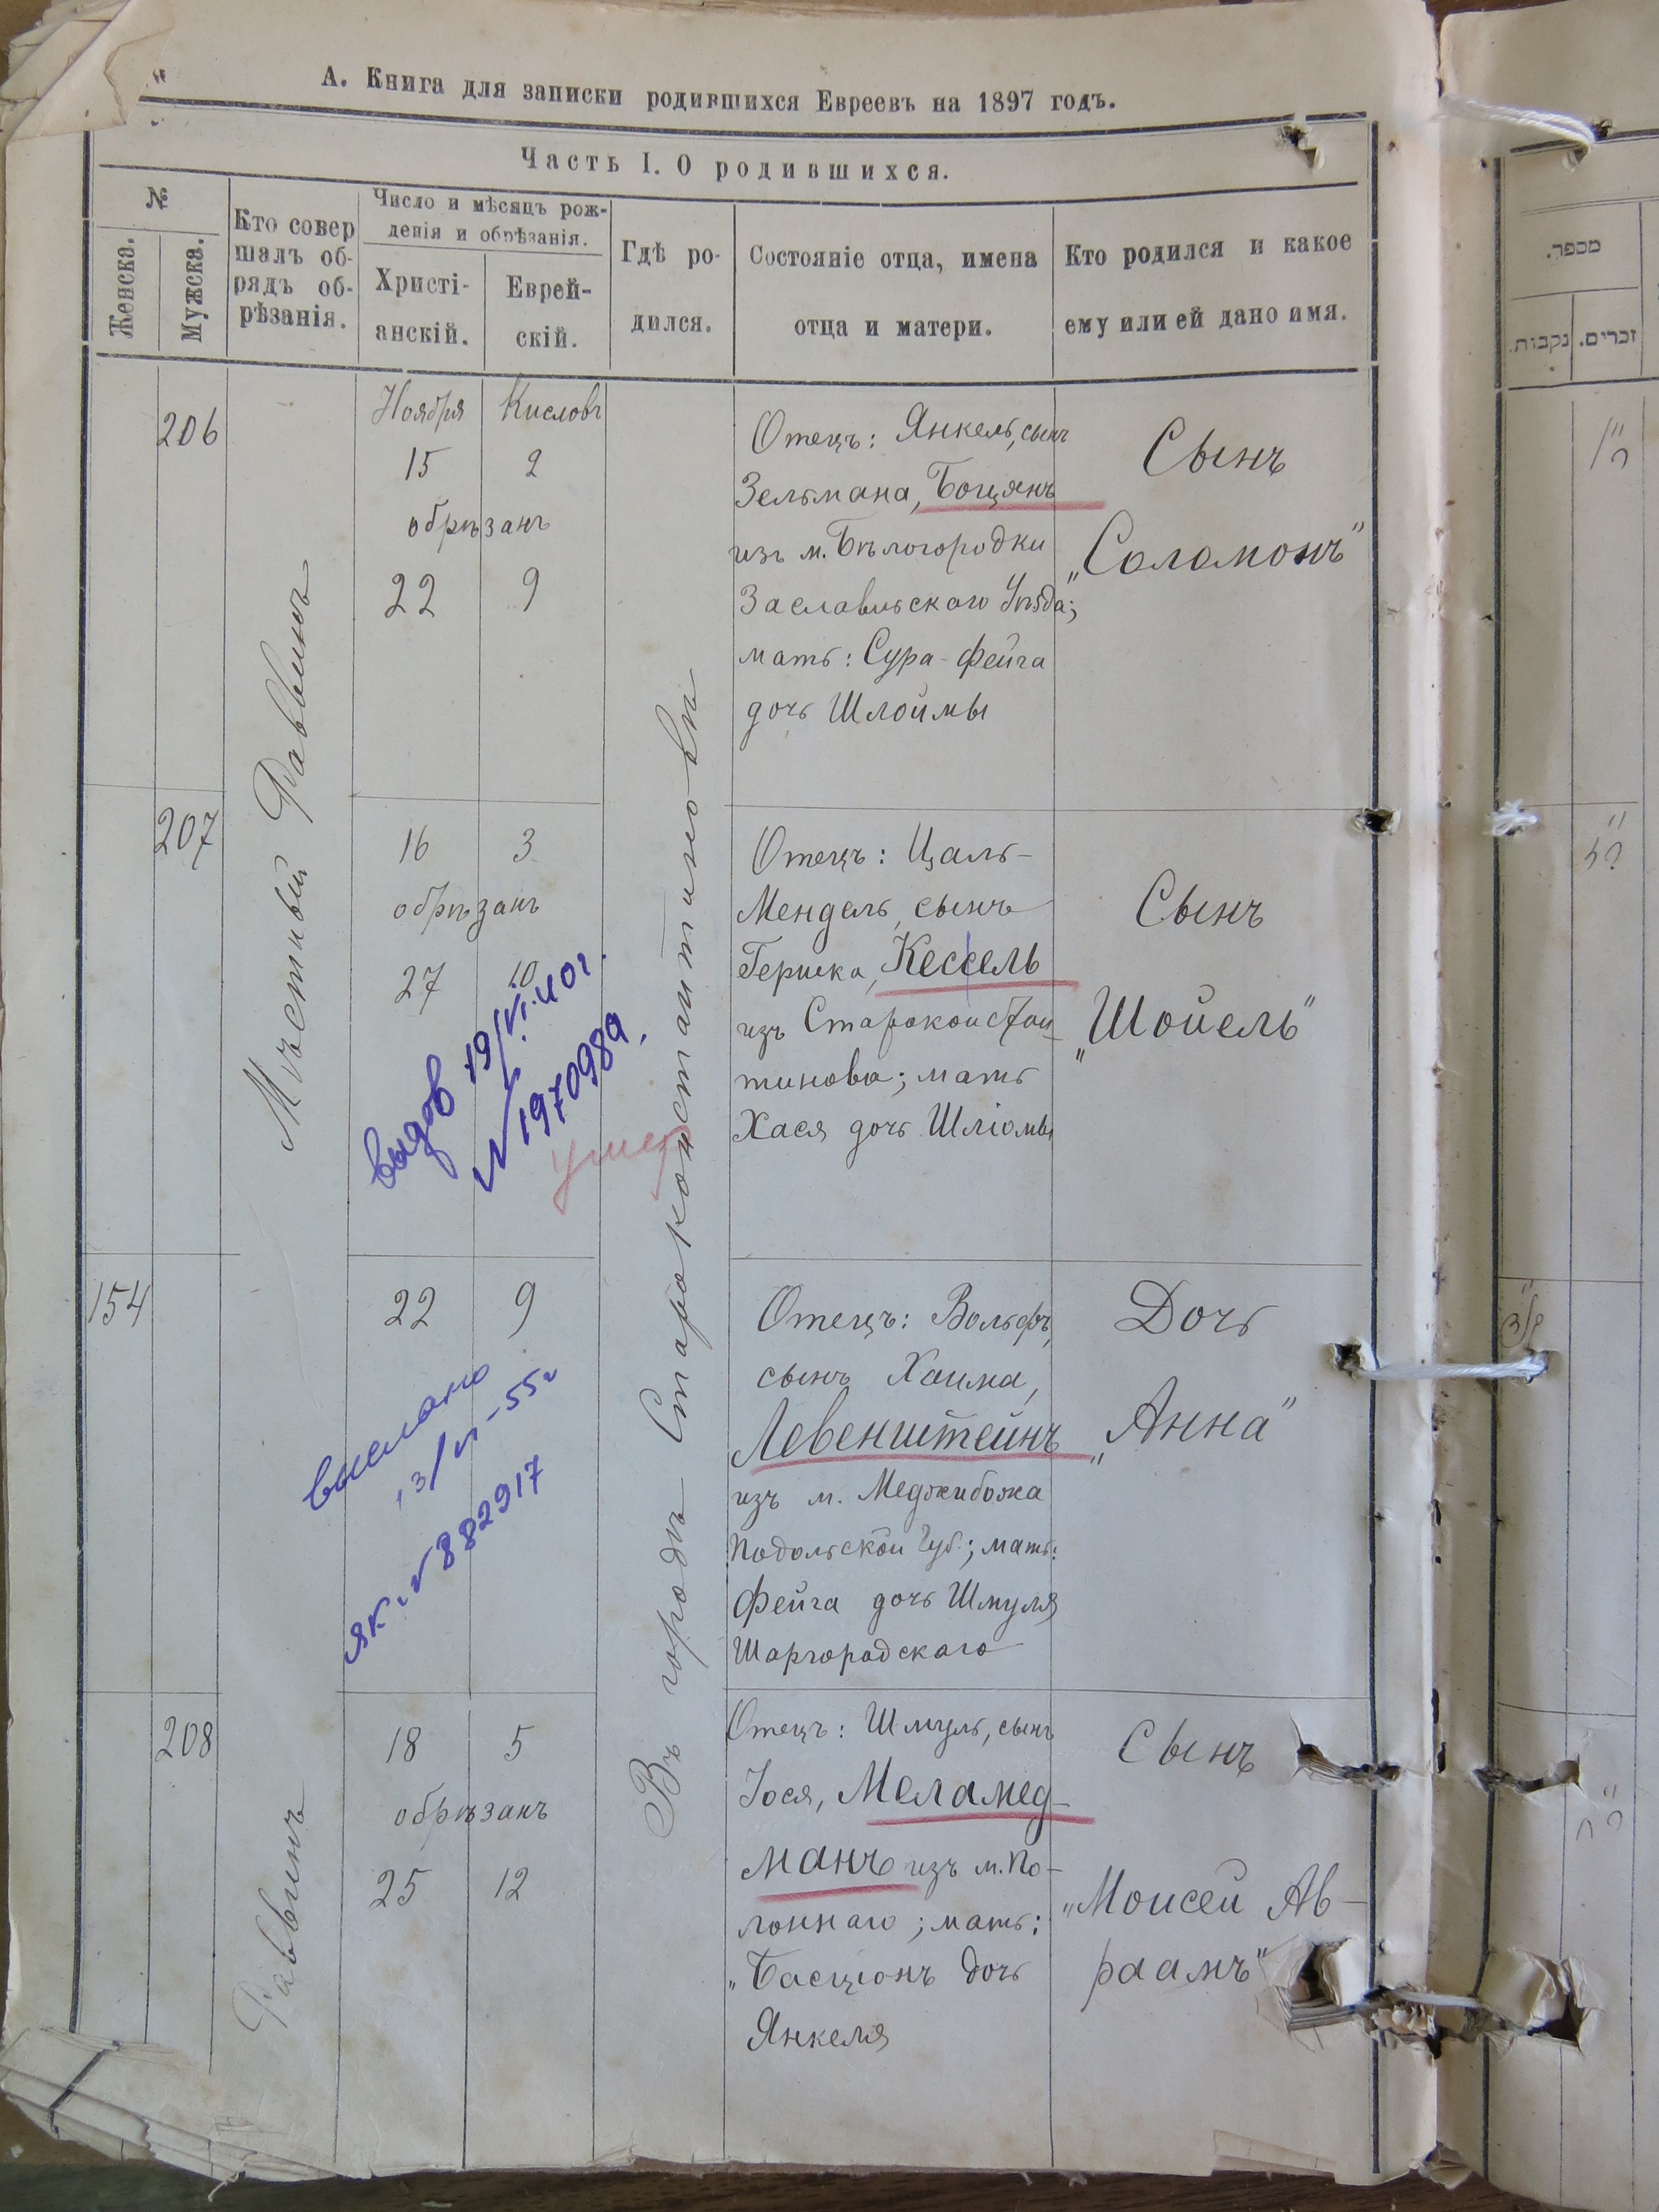 А. Книга для записки родившихся Евреевъ на 1897 годъ.
Часть I. О родившихся.
№
Женска.
Мужска.
Кто совер
шалъ об-
рядъ об-
рѣзанія.
Число и мѣсяцъ рож-
денія и обрѣзанія.
Христі-
анскій.
Еврей-
скій.
Гдѣ ро-
дился.
Состояніе отца, имена
отца и матери.
Кто родился и какое
ему или ей дано имя.
Мѣстный Раввинъ
Раввинъ
Въ городѣ Староконстантиновѣ
206
Ноября Кисловъ
15 2
обрѣзанъ
22 9
Отецъ: Янкель, сынъ
Зельмана, Боцянъ
изъ м. Бѣлогородки
Заславльскаго Уѣзда;
мать: Сура-Фейга
дочь Шлоймы
Сынъ
„Соломонъ"
207
16 3
обрѣзанъ
27 10
выдов 19/VI.40г.
№ 1970989
умер
Отецъ: Цаль-
Мендель, сынъ
Гершка, Кессель
изъ Староконстан-
тинова; мать
Хася дочь Шліомы
Сынъ
„Шойель"
154
22 9
выслано
13/VI-55г
як. № 882917
Отецъ: Вольфъ,
сынъ Хаима,
Левенштейнъ
изъ м. Меджибожа
Подольской Губ.; мать:
Фейга дочь Шмуля
Шаргородскаго
Дочь
„Анна"
208
18 5
обрѣзанъ
25 12
Отецъ: Шмуль, сынъ
Іося, Меламед-
манъ изъ м. По-
лоннаго; мать:
„Басціонъ дочь
Янкеля
Сынъ
„Моисей Ав-
раамъ"
מספר.
זכרים.
נקבות.